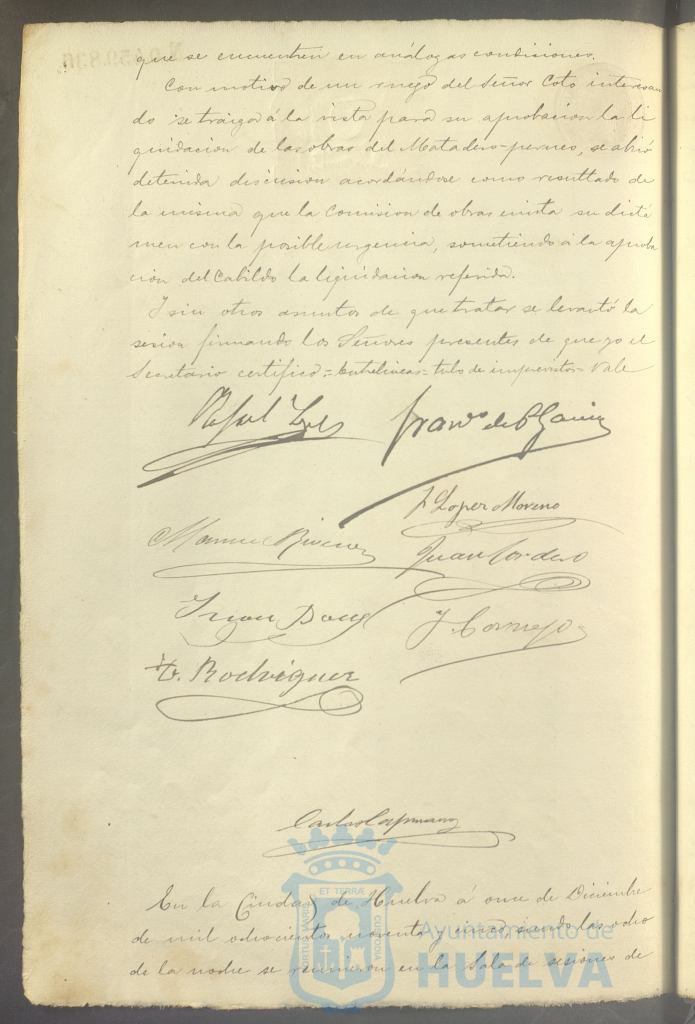 que se encuentren en análogas condiciones.
Con motivo de un ruego del Señor Coto interesan
do se traiga á la vista para su aprobacion la li
quidacion de las obras del Matadero-perneo, se abrió
detenida discusion acordándose como resultado de
la misma que la Comision de obras emita su dictá
men con la posible urgencia, sometiendo á la aproba
cion del Cabildo la liquidacion referida.
Y sin otros asuntos de que tratar se levantó la
sesion firmando los Señores presentes de que yo el
Secretario certifico = Entrelineas = de imprevistos = Vale
Rafael
Franco de P García
J Lopez Moreno
Manuel
Juan Cordero
Juan
J. Cornejo
Rodriguez
Carlos
En la Ciudad de Huelva á once de Diciembre
de mil ochocientos noventa y cinco, siendo las ocho
de la noche se reunieron en la Sala de sesiones de
ET TERRÆ
PORTUS MARIS
CUSTODIA
Ayuntamiento de
HUELVA